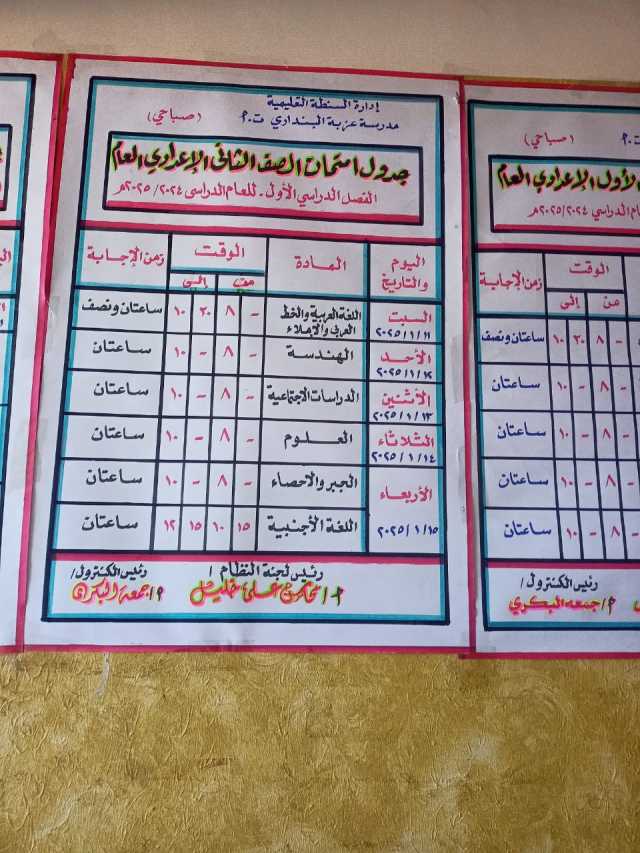 إدارة السنطة التعليمية
مدرسة عزبة البنداري ت.أ
(صباحي)
جدول امتحان الصف الثاني الإعدادي العام
الفصل الدراسي الأول - للعام الدراسي ٢٠٢٤/ ٢٠٢٥م
اليوم والتاريخ المادة الوقت من إلى زمن الإجابة
السبت ٢٠٢٥/١/١١ اللغة العربية والخط العربي والإملاء - ٨ ٣٠ ١٠ ساعتان ونصف
الأحد ٢٠٢٥/١/١٢ الهندسة - ٨ - ١٠ ساعتان
الأثنين ٢٠٢٥/١/١٣ الدراسات الاجتماعية - ٨ - ١٠ ساعتان
الثلاثاء ٢٠٢٥/١/١٤ العلوم - ٨ - ١٠ ساعتان
الأربعاء ٢٠٢٥/١/١٥ الجبر والاحصاء - ٨ - ١٠ ساعتان
اللغة الأجنبية ١٥ ١٠ ١٥ ١٢ ساعتان
رئيس لجنة النظام /
رئيس الكنترول /
علي خليل
أ/ جمعة البكري
(صباحي)
لأول الإعدادي العام
الدراسي ٢٠٢٤/ ٢٠٢٥م
الوقت من إلى زمن الإجابة
- ٨ ٣٠ ١٠ ساعتان ونصف
- ٨ - ١٠ ساعتان
- ٨ - ١٠ ساعتان
- ٨ - ١٠ ساعتان
٨ - ١٠ ساعتان
رئيس الكنترول /
أ/ جمعه البكري